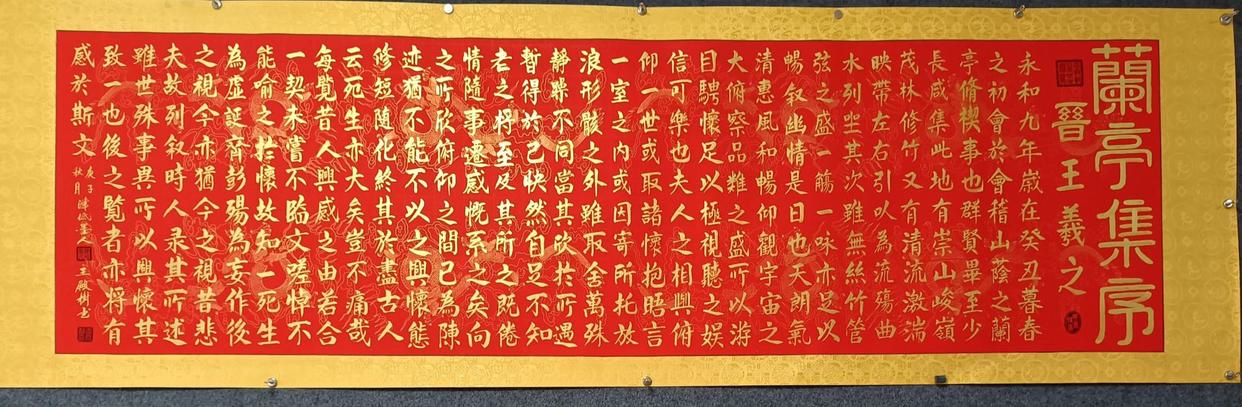 蘭亭集序
晉王羲之
永和九年嵗在癸丑暮春
之初會於會稽山蔭之蘭
亭脩禊事也群賢畢至少
長咸集此地有崇山峻嶺
茂林修竹又有清流激湍
映帶左右引以為流殤曲
水列坐其次雖無絲竹管
弦之盛一觴一咏亦足以
暢叙幽情是日也天朗氣
清惠風和暢仰觀宇宙之
大俯察品類之盛所以游
目騁懷足以極視聽之娱
信可樂也夫人之相興俯
仰一世或取諸懷抱晤言
一室之内或因寄所托放
浪形骸之外雖取舍萬殊
靜躁不同當其欣於所遇
暫得於己快然自足不知
老之將至及其所之既倦
情隨事遷感慨系之矣向
之所欣俯仰之間已為陳
迹猶不能不以之興懷態
修短隨化終其於盡古人
云死生亦大矣豈不痛哉
每覽昔人興感之由若合
一契未嘗不臨文嗟悼不
能俞之於懷故知一死生
為虛誕齊彭殤為妄作後
之視今亦猶今之視昔悲
夫故列叙時人录其所述
雖世殊事異所以興懷其
致一也後之覽者亦將有
感於斯文
庚子秋月